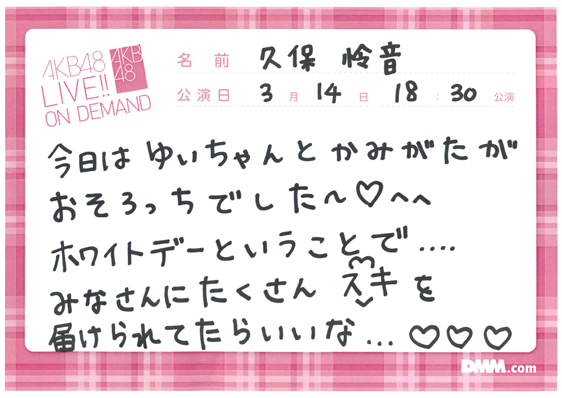 AKB48
LIVE!!
ON DEMAND
AKB
48
名前 久保 怜音
公演日 3月14日 18:30公演
今日は ゆいちゃんと かみがたが
おそろっちでした〜♡へへ
ホワイトデーということで....
みなさんにたくさん スキを
届けられてたらいいな...♡♡♡
DMM.com